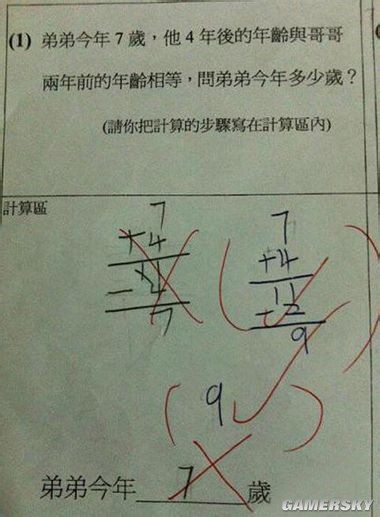 (1) 弟弟今年 7 歲，他 4 年後的年齡與哥哥
兩年前的年齡相等，問弟弟今年多少歲？
(請你把計算的步驟寫在計算區內)
計算區
7
+4
11
- 4
7
7
+4
11
9
(9✓)
弟弟今年 7 歲
GAMERSKY